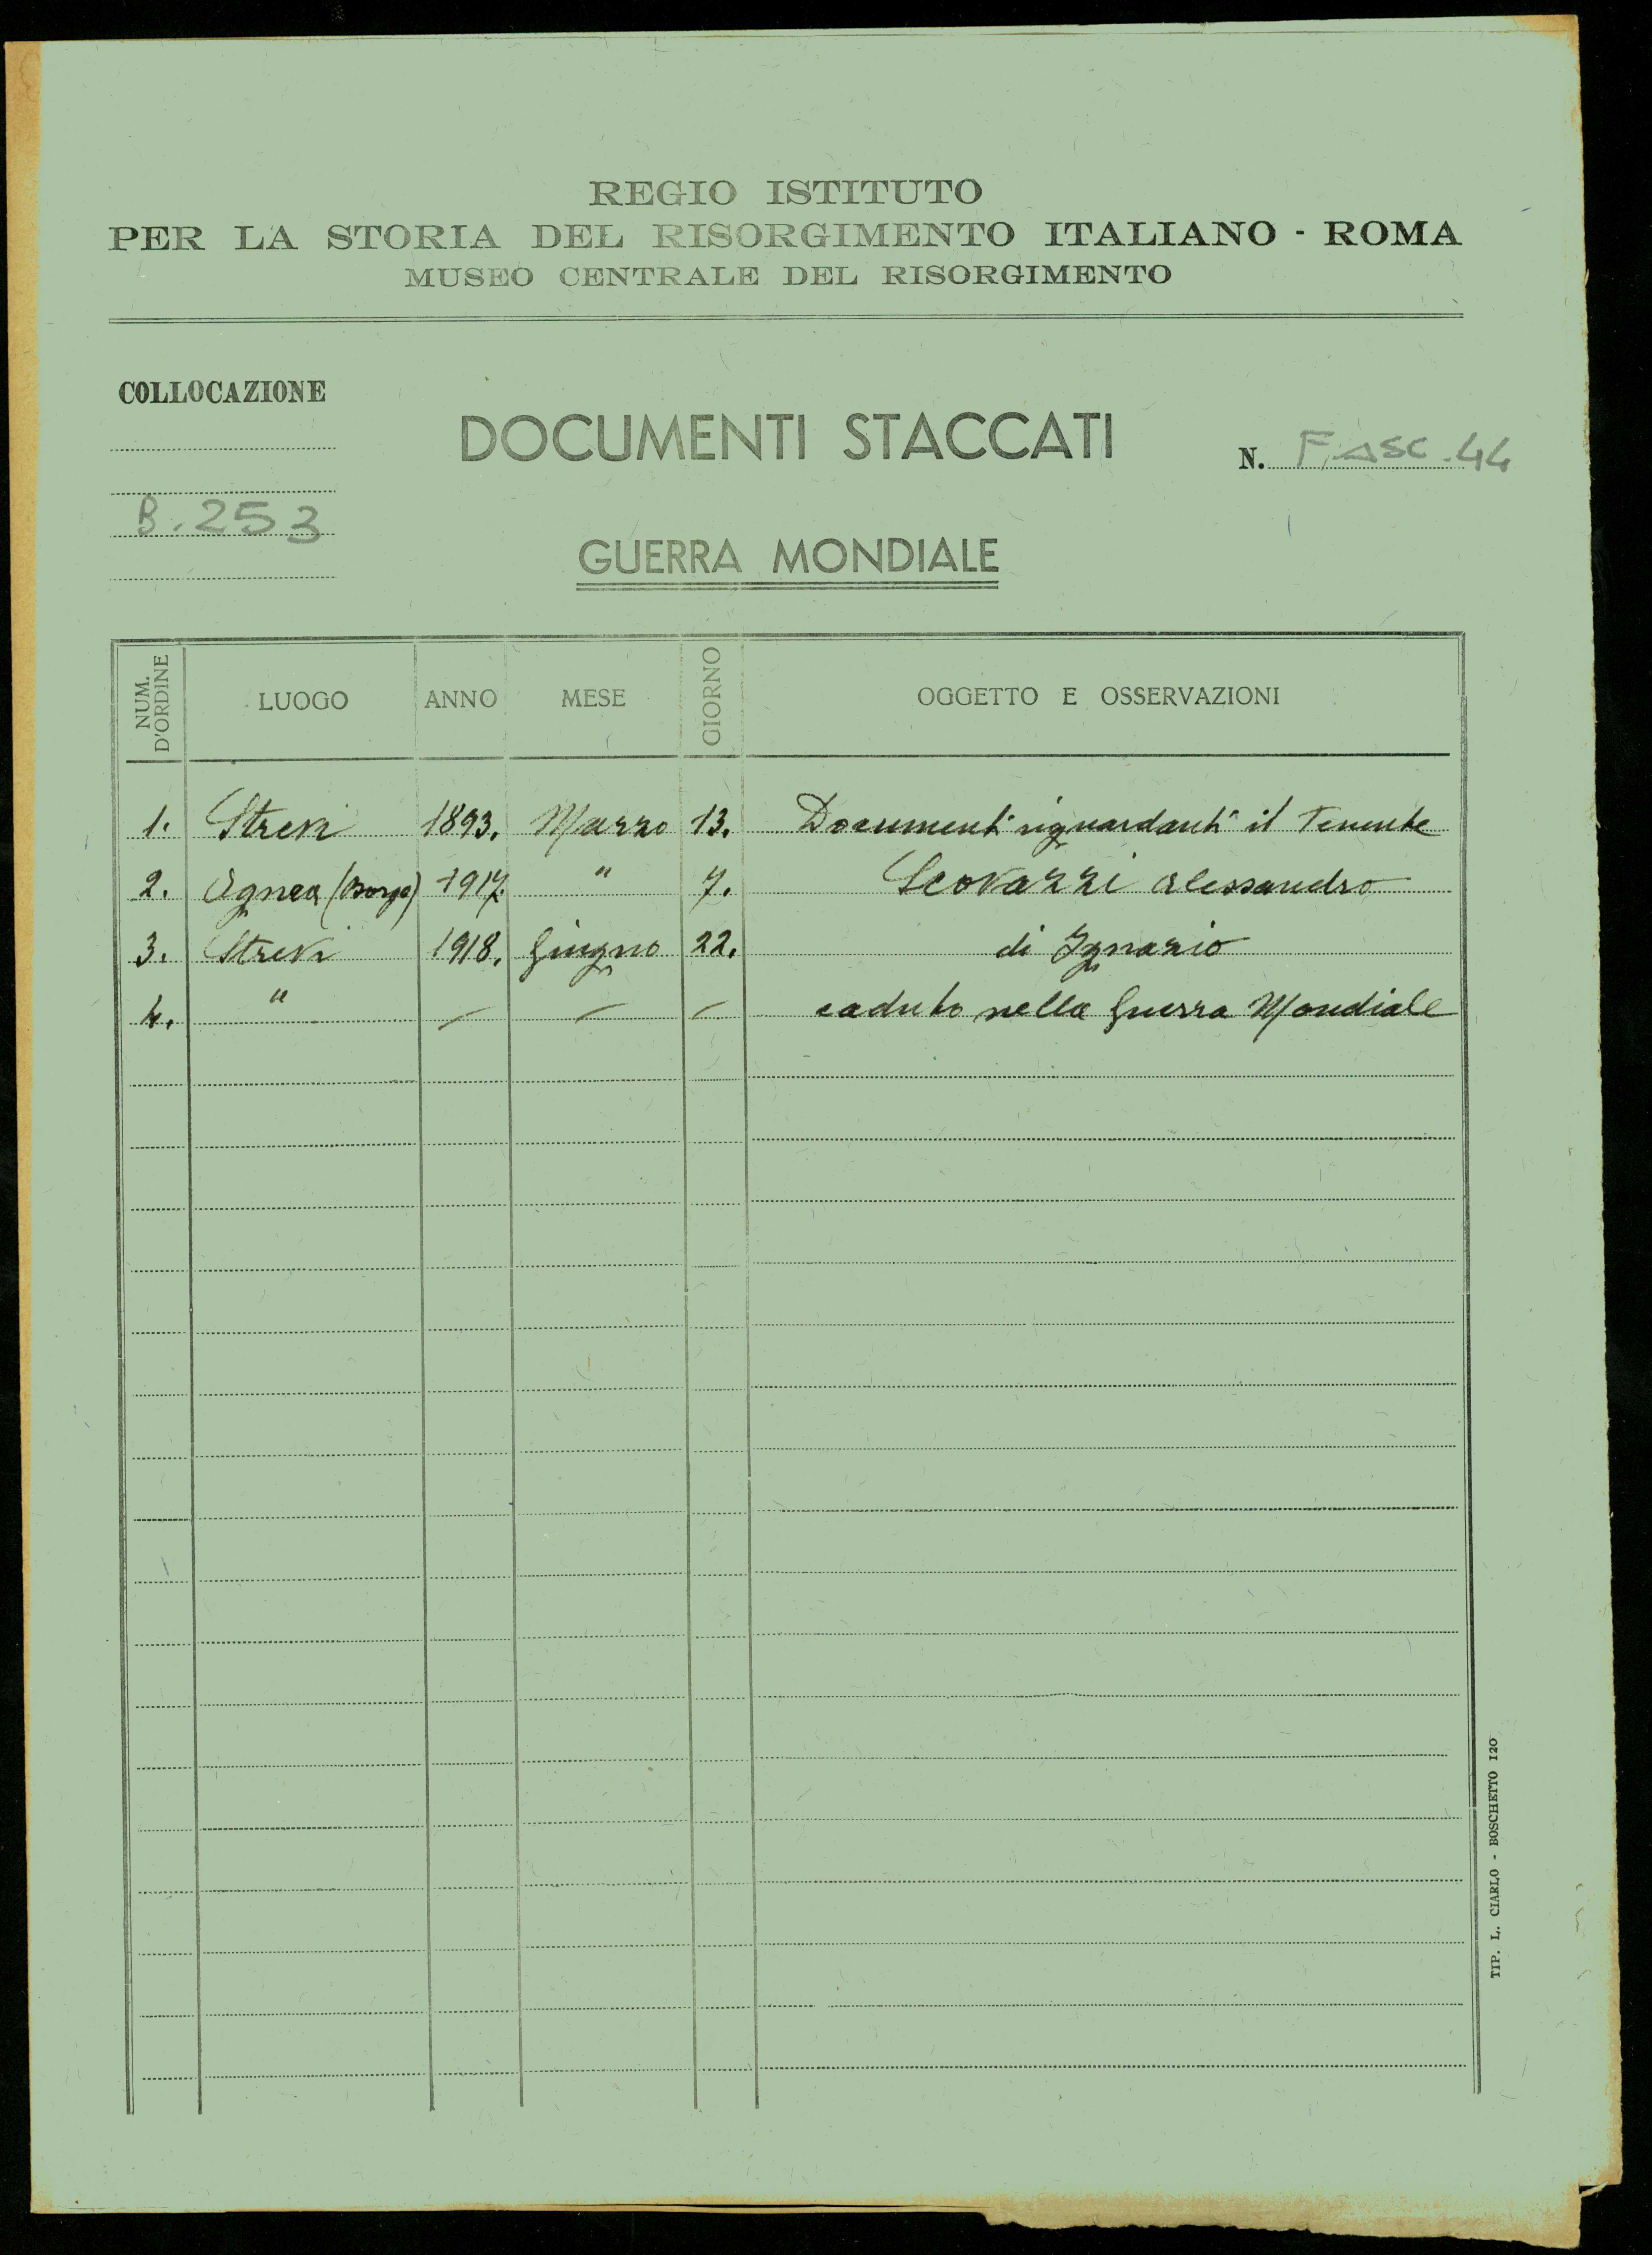 REGIO ISTITUTO
PER LA STORIA DEL RISORGIMENTO ITALIANO - ROMA
MUSEO CENTRALE DEL RISORGIMENTO
COLLOCAZIONE
DOCUMENTI STACCATI
N. FASC. 44
B. 253
GUERRA MONDIALE
NUM. D'ORDINE LUOGO ANNO MESE GIORNO OGGETTO E OSSERVAZIONI
1. Strevi 1893. Marzo 13. Documenti riguardanti il Tenente
2. 1917. " 7. Scovazzi Alessandro
3. Strevi 1918. Giugno 22. di Ignazio
4. " — — — caduto nella Guerra Mondiale
TIP. L. CIARLO - BOSCHETTO 120